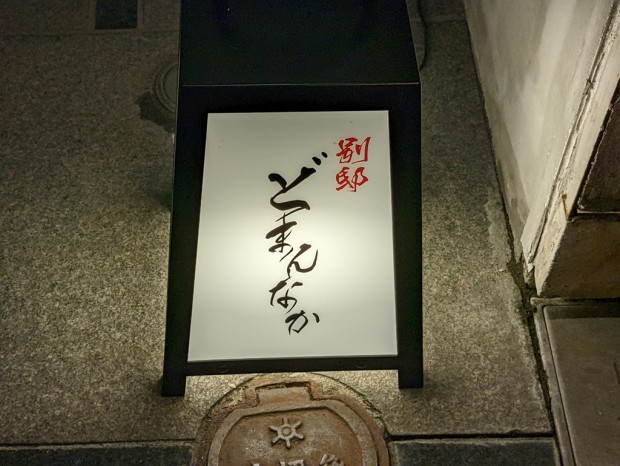 別邸
どまんなか